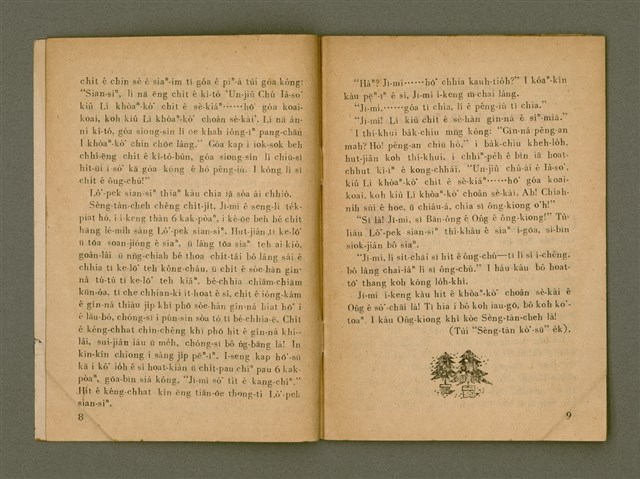 chit ê chin sè ê siaⁿ-im tī góa ê piⁿ-á túi góa kóng:
"Sian-siⁿ, lí nā ēng chit ê kî-tó 'Un-jiû Chú Iâ-so'
kiû Lí khòaⁿ-kò͘ chit ê sè-kiáⁿ⋯⋯hō͘ góa koai-
koai, koh kiû Lí khòaⁿ-kò͘ choân sè-kài'. Lí nā án-
ni kî-tó, góa siong-sìn lí oē khah iông-īⁿ pang-chān
I khòaⁿ-kò͘ chin chōe lâng." Góa kap i iok-sok beh
chhì-ēng chit ê kî-tó-bûn, góa siong-sìn lí chiū-sī
hit-ūi i só͘ kā góa kóng ê hó pêng-iú. I kóng lí sī
chit ê ông-chú!"
Lô͘-pek sian-siⁿ thiaⁿ kàu chia iā sòa ài chhiò.
Sèng-tàn-cheh chêng chit-jit, Ji-mí ê seng-lí tek-
piat hó, i í-keng thàn 6 kak-pòaⁿ, i kè-oē beh bé chit
hāng lé-mih sàng Lô͘-pek sian-siⁿ. Hut-jiân,tī ke-lō͘
ū tōa soan-jiòng ê siaⁿ, ū lâng tōa siaⁿ teh ai-kiò,
goân-lâi ū nn̄g-chiah bé thoa chit-tâi bô lâng sái ê
chhia tī ke-lō͘ teh kông-cháu, ū chit ê sòe-hàn gín-
ná tú-tú tī ke-lō͘ teh kiâⁿ. bé-chhia chiām-chiām
kūn-óa. tī che chhian-kì it-hoat ê sî, chit ê ióng-kám
ê gín-ná thiàu jip khì phō sòe-hàn gín-ná hiat hō͘ i
ê lāu-bó, chóng-sī i pún-sin sòa tó tī bé-chhia-ē. Chit
ê kéng-chhat chin-chêng khì phō hit ê gín-ná khí--
lâi, sui-jiân iáu ū méh, chóng-sī bô n̄g-bāng lá! In
kín-kín chiong i sàng jip pēⁿ-īⁿ. I-seng kap hō͘-sū
kā i kò͘ ioh ê sî hoat-kiàn ū chit-pau chíⁿ pau 6 kak-
pòaⁿ, gōa-bīn siá kóng, "Ji-mí só͘ tit ê kang-chîⁿ."
Hit ê kéng-chhat kín ēng tiān-ōe thong-ti Lô͘-pek
sian-siⁿ.
8
"Hâⁿ? Ji-mí⋯⋯hō͘ chhia kauh-tióh?" I kóaⁿ-kín
kàu pēⁿ-īⁿ ê sî, Ji-mí í-keng m̄-chai lâng.
"Ji-mí,⋯⋯góa tī chia, lí ê pêng-iú tī chia."
"Ji-mí! Lí kiû chit ê sè-hàn gín-ná ê sìⁿ-miā."
I thí-khui bak-chiu mn̄g kóng: "Gín-ná pêng-an
mah? Hó! pêng-an chiū hó." i bak-chiu kheh-lóh,
hut-jiân koh thí-khui, i chhiⁿ-péh ê bīn iā hoat-
chhut kî-īⁿ ê kong-chhái. "Un-jiû chû-ài ê Iâ-so͘,
kiû Lí khòaⁿ-kò͘ chit ê sè-kiáⁿ⋯⋯hō͘ góa koai-
koai, koh kiû Lí khòaⁿ-kò͘ choân sè-kài, Ah! Chiah-
nih súi ê hoe, ū chiáu-á, chia sī ông-kiong o͘h!"
"Sī lá! Ji-mí, sī Bān-ông ê Ông ê ông-kiong!" Tú-
liáu Lô͘-pek sian-siⁿ thí-khàu ê siaⁿ í-gōa, sì-bīn
siok-jiân bô siaⁿ.
"Ji-mí, lí sit-chāi sī hit ê ông-chú—tī lí sí í-chêng,
bô lâng chai-iáⁿ lí sī ông-chú." I hâu-kàu bô hoat-
tō͘ thang koh kóng lóh-khì.
Ji-mí í-keng kàu hit ê khòaⁿ-kò͘ choân sè-kài ê
Ông ê só͘-chāi lá! Tī hia i bô koh iau-gō, bô koh ko͘-
toaⁿ. I kàu Ông-kiong khì kòe Sèng-tàn-cheh lá!
(Túi "Sèng-tàn kò͘-sū" ék).
9